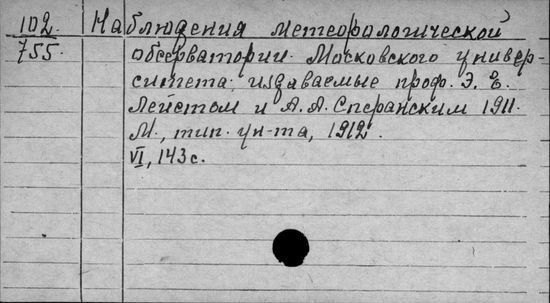 102. Наблюдения метеорологической
755. обсерватории Московского универ-
ситета, издаваемые проф. Э. Е.
Лейстом и А. А. Сперанским 1911.
М., тип. ун-та, 1912.
VI, 143 с.